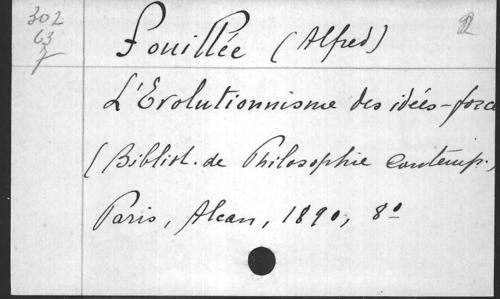 302
63
7
Fouillée (Alfred)
L'Evolutionnisme des idées-force
(Bibliot. de Philosophie contemp.)
Paris, Alcan, 1890, 8º